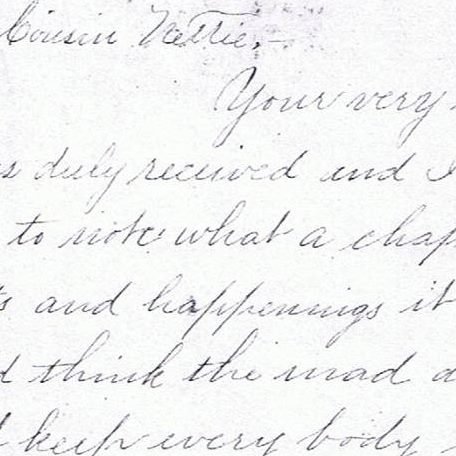 Cousin Nettie.
Your very
duly received and I
to note what a chap
and happenings it
think the mad
keep every body